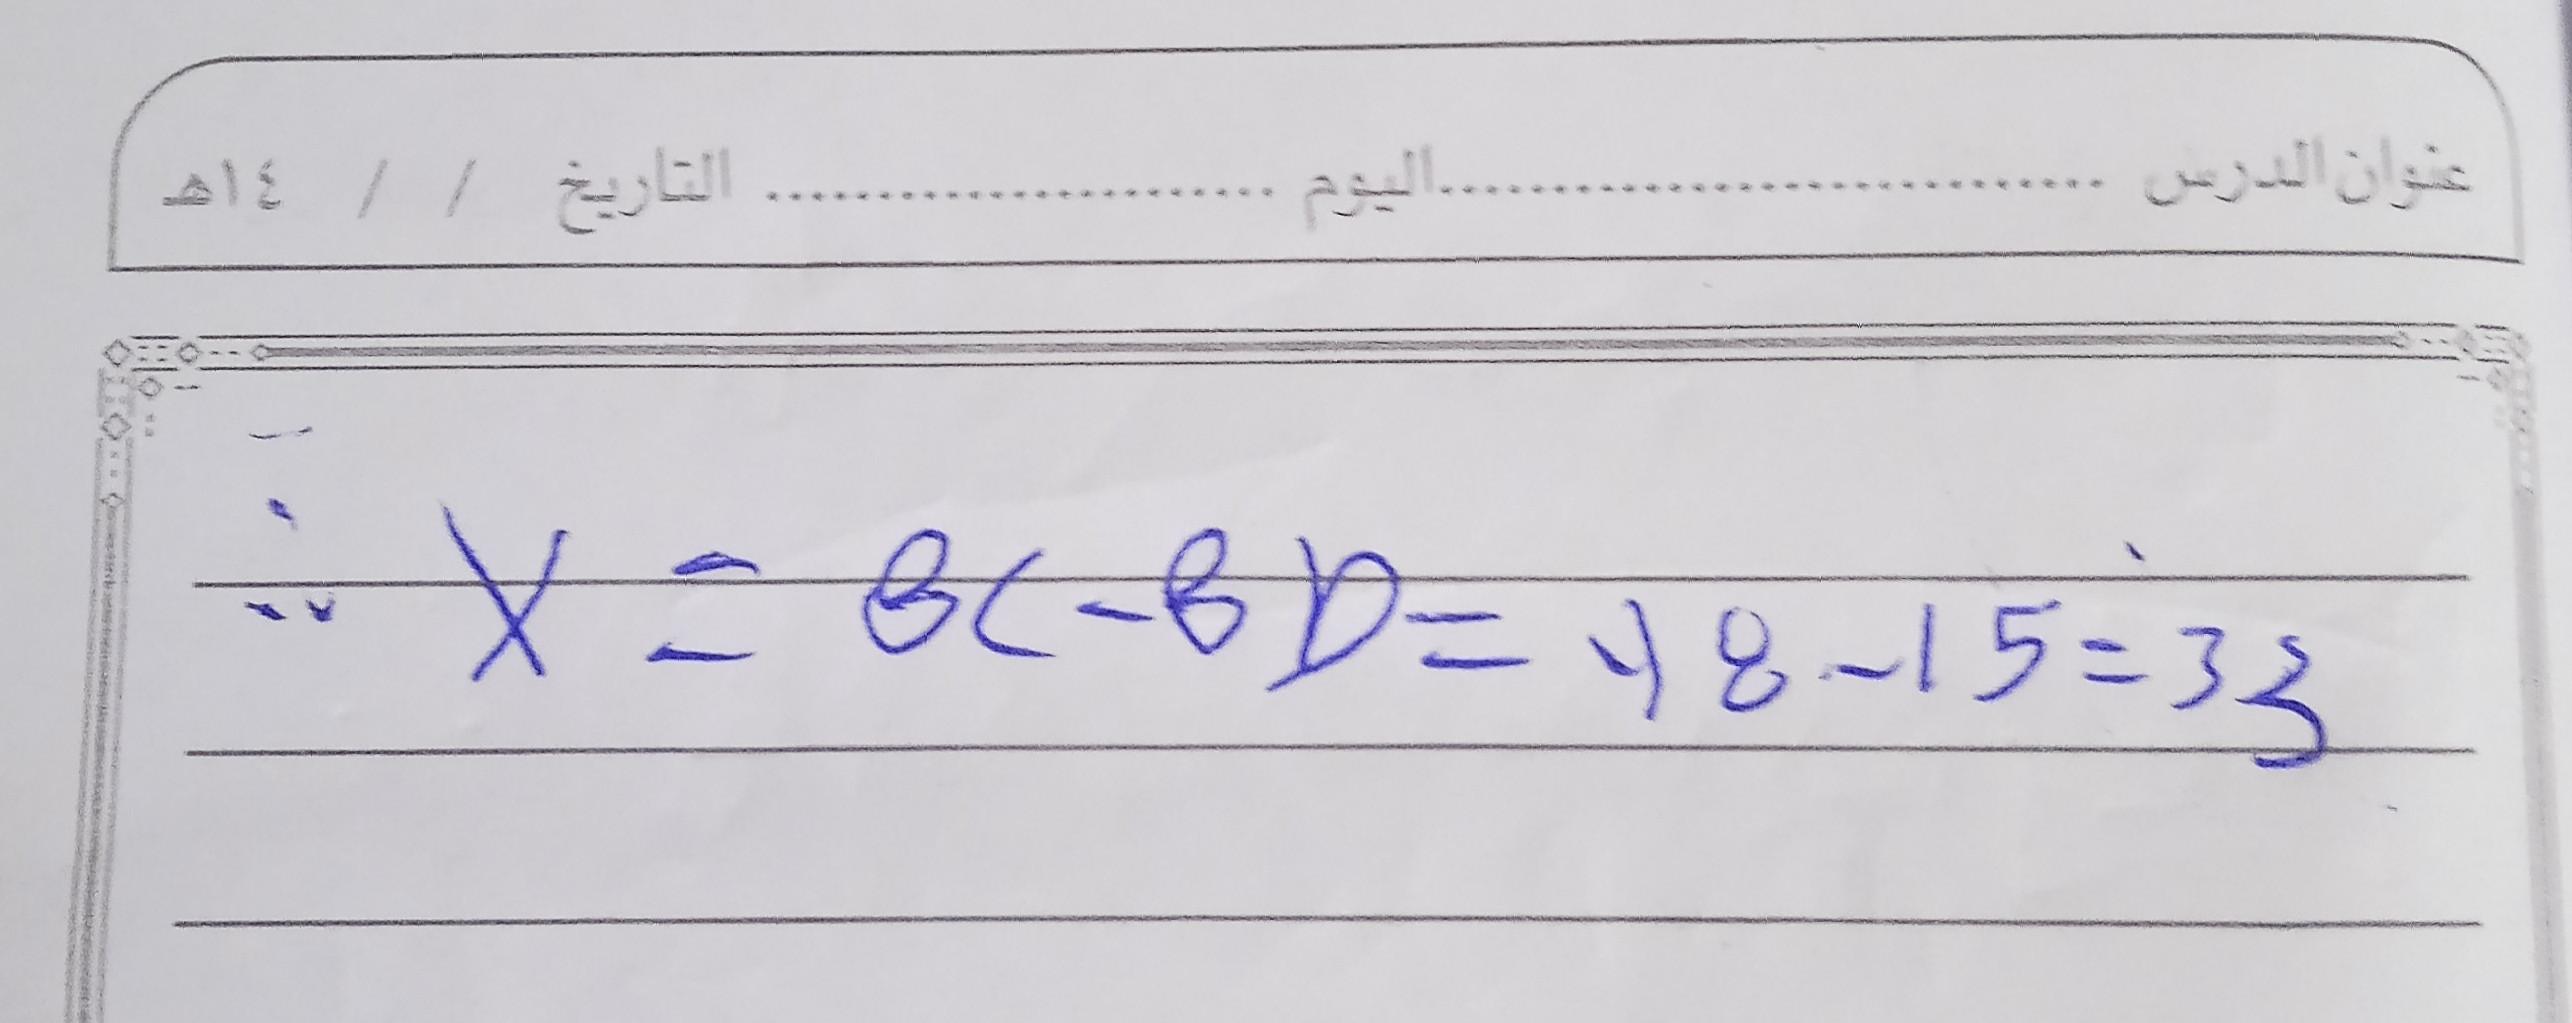 عنوان الدرس ............................. اليوم ...................... التاريخ / / ١٤هـ
∴ X = BC - BD = 48 - 15 = 33